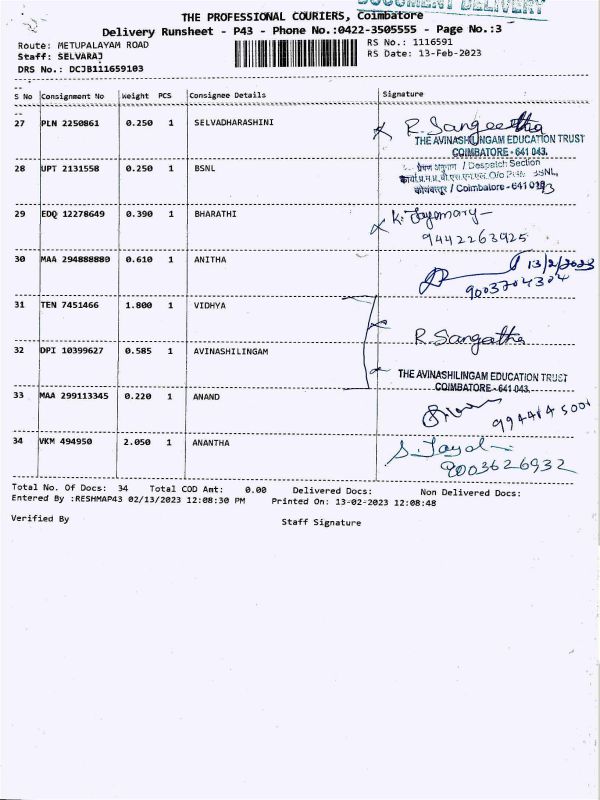 DOCUMENT DELIVERY
THE PROFESSIONAL COURIERS, Coimbatore
Delivery Runsheet - P43 - Phone No.:0422-3505555 - Page No.:3
Route: METUPALAYAM ROAD RS No.: 1116591
Staff: SELVARAJ RS Date: 13-Feb-2023
DRS No.: DCJB111659103
S No Consignment No Weight PCS Consignee Details Signature
27 PLN 2250861 0.250 1 SELVADHARASHINI R. Sangeetha
THE AVINASHILINGAM EDUCATION TRUST
COIMBATORE - 641 043.
28 UPT 2131558 0.250 1 BSNL / Despatch Section
BSNL,
कोयंबत्तूर / Coimbatore - 641 043
29 EDQ 12278649 0.390 1 BHARATHI K. Jayamary
9442263925
30 MAA 294888880 0.610 1 ANITHA 13/2/2023
9003704304
31 TEN 7451466 1.800 1 VIDHYA
R. Sangeetha
32 DPI 10399627 0.585 1 AVINASHILINGAM
THE AVINASHILINGAM EDUCATION TRUST
COIMBATORE - 641 043.
33 MAA 299113345 0.220 1 ANAND
34 VKM 494950 2.050 1 ANANTHA
9003626932
Total No. Of Docs: 34 Total COD Amt: 0.00 Delivered Docs: Non Delivered Docs:
Entered By :RESHMAP43 02/13/2023 12:08:30 PM Printed On: 13-02-2023 12:08:48
Verified By Staff Signature